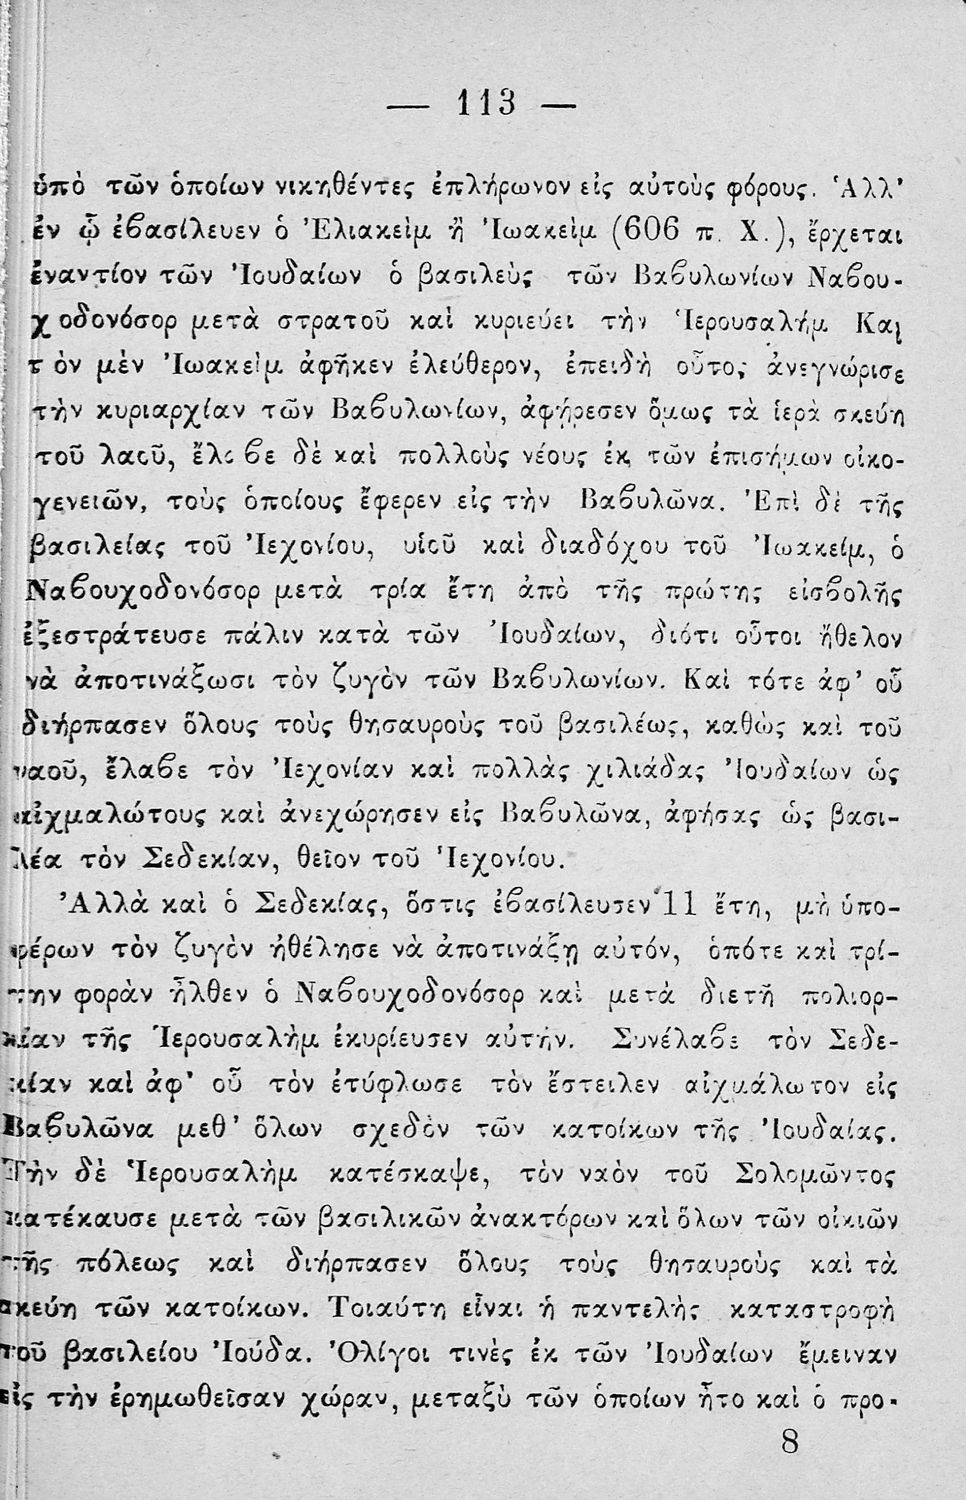 — 113 —
ὑπὸ τῶν ὁποίων νικηθέντες ἐπλήρωνον εἰς αὐτοὺς φόρους. Ἀλλ’
ἐν ᾧ ἐβασίλευεν ὁ Ἐλιακεὶμ ἢ Ἰωακεὶμ (606 π. Χ.), ἔρχεται
ἐναντίον τῶν Ἰουδαίων ὁ βασιλεὺς τῶν Βαβυλωνίων Ναβου-
χοδονόσορ μετὰ στρατοῦ καὶ κυριεύει τὴν Ἱερουσαλήμ Καὶ
τὸν μὲν Ἰωακεὶμ ἀφῆκεν ἐλεύθερον, ἐπειδὴ οὗτος ἀνεγνώρισε
τὴν κυριαρχίαν τῶν Βαβυλωνίων, ἀφῄρεσεν ὅμως τὰ ἱερὰ σκεύη
τοῦ λαοῦ, ἔλαβε δὲ καὶ πολλοὺς νέους ἐκ τῶν ἐπισήμων οἰκο-
γενειῶν, τοὺς ὁποίους ἔφερεν εἰς τὴν Βαβυλῶνα. Ἐπὶ δὲ τῆς
βασιλείας τοῦ Ἰεχονίου, υἱοῦ καὶ διαδόχου τοῦ Ἰωακείμ, ὁ
Ναβουχοδονόσορ μετὰ τρία ἔτη ἀπὸ τῆς πρώτης εἰσβολῆς
ἐξεστράτευσε πάλιν κατὰ τῶν Ἰουδαίων, διότι οὗτοι ἤθελον
νὰ ἀποτινάξωσι τὸν ζυγὸν τῶν Βαβυλωνίων. Καὶ τότε ἀφ’ οὗ
διήρπασεν ὅλους τοὺς θησαυροὺς τοῦ βασιλέως, καθὼς καὶ τοῦ
ναοῦ, ἔλαβε τὸν Ἰεχονίαν καὶ πολλὰς χιλιάδας Ἰουδαίων ὡς
αἰχμαλώτους καὶ ἀνεχώρησεν εἰς Βαβυλῶνα, ἀφήσας ὡς βασι-
λέα τὸν Σεδεκίαν, θεῖον τοῦ Ἰεχονίου.
Ἀλλὰ καὶ ὁ Σεδεκίας, ὅστις ἐβασίλευσεν 11 ἔτη, μὴ ὑπο-
φέρων τὸν ζυγὸν ἠθέλησε νὰ ἀποτινάξῃ αὐτόν, ὁπότε καὶ τρί-
την φορὰν ἦλθεν ὁ Ναβουχοδονόσορ καὶ μετὰ διετῆ πολιορ-
κίαν τῆς Ἱερουσαλὴμ ἐκυρίευσεν αὐτήν. Συνέλαβε τὸν Σεδε-
κίαν καὶ ἀφ’ οὗ τὸν ἐτύφλωσε τὸν ἔστειλεν αἰχμάλωτον εἰς
Βαβυλῶνα μεθ’ ὅλων σχεδὸν τῶν κατοίκων τῆς Ἰουδαίας.
Τὴν δὲ Ἱερουσαλὴμ κατέσκαψε, τὸν ναὸν τοῦ Σολομῶντος
κατέκαυσε μετὰ τῶν βασιλικῶν ἀνακτόρων καὶ ὅλων τῶν οἰκιῶν
τῆς πόλεως καὶ διήρπασεν ὅλους τοὺς θησαυροὺς καὶ τὰ
σκεύη τῶν κατοίκων. Τοιαύτη εἶναι ἡ παντελὴς καταστροφὴ
τοῦ βασιλείου Ἰούδα. Ὀλίγοι τινὲς ἐκ τῶν Ἰουδαίων ἔμειναν
εἰς τὴν ἐρημωθεῖσαν χώραν, μεταξὺ τῶν ὁποίων ἦτο καὶ ὁ προ-
8